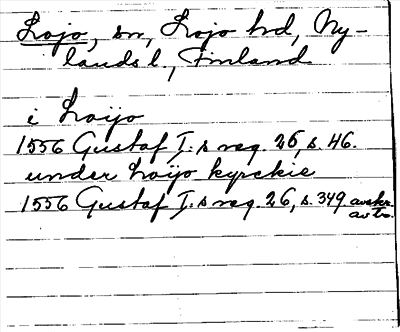 Lojo, sn, Lojo hd, Ny-
lands l., Finland
i Loijo
1556 Gustaf I:s reg. 26, s. 46.
under Loijo kyrckie
1556 Gustaf I:s reg. 26, s. 349 avskr.
av to.